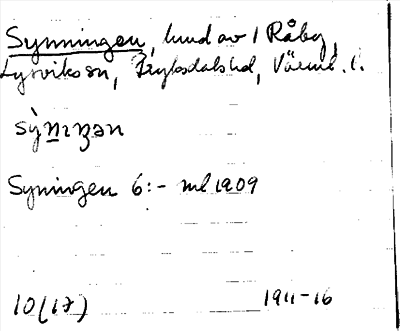 Synningen, lund av 1 Råby,
Lysviks sn, Fryksdals hd, Värml. l.
sỳnıŋən
Syningen 6:- ml 1909
10(17) 1911-16